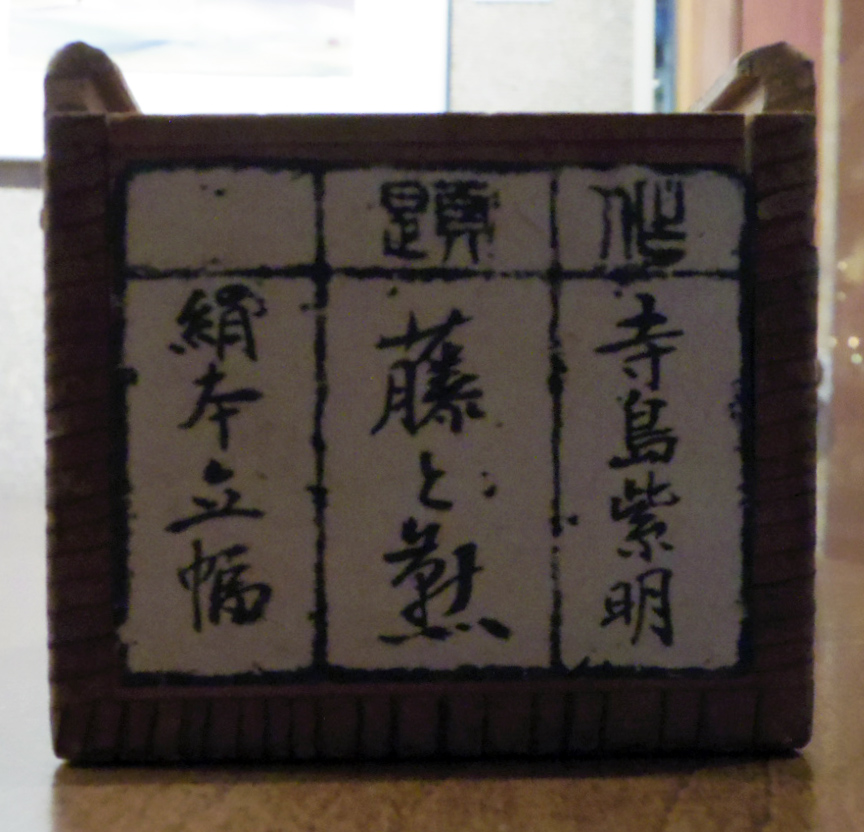 作
寺島紫明
題
藤と
絹本立幅